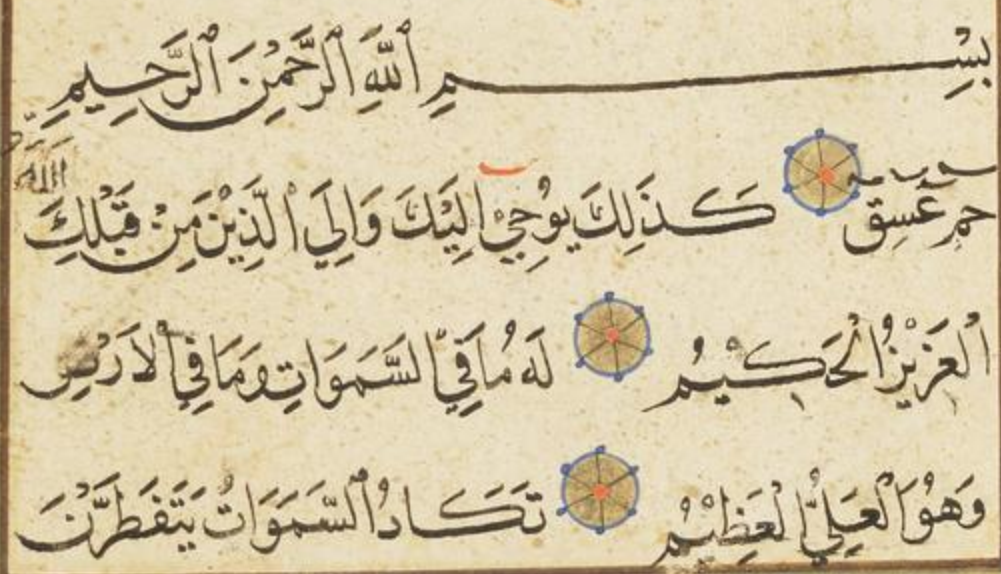 بِسْمِ ٱللَّهِ ٱلرَّحْمٰنِ ٱلرَّحِيمِ
حم عسق كَذَلِكَ يُوحِي إِلَيْكَ وَإِلَى الَّذِيْنَ مِنْ قَبْلِكَ
الله
الْعَزِيْزُ الْحَكِيْمُ لَهُ مَا فِي السَّمَوَاتِ وَمَا فِي الْاَرْضِ
وَهُوَ الْعَلِيُّ الْعَظِيْمُ تَكَادُ السَّمَوَاتُ يَتَفَطَّرْنَ